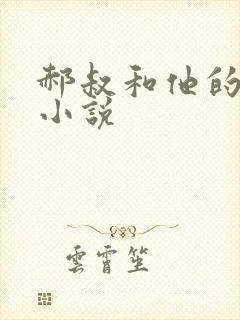 郝叔和他的
小說
雲霄笙